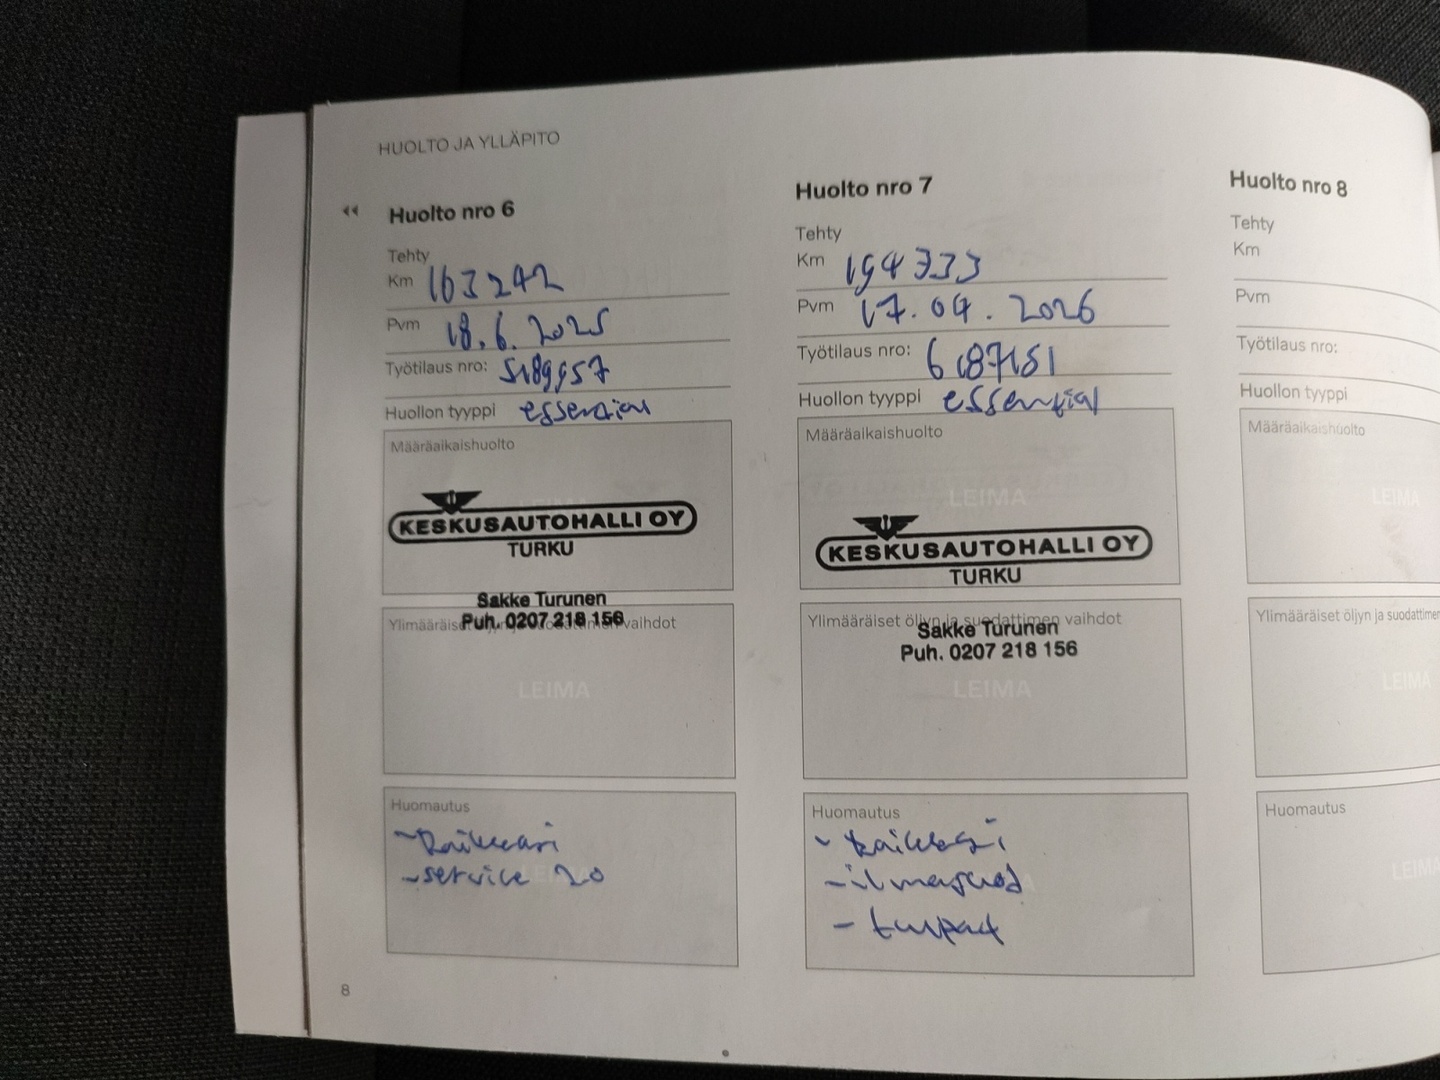 HUOLTO JA YLLÄPITO
Huolto nro 6
Tehty
Km 163242
Pvm 18.6.2025
Työtilaus nro:
Huollon tyyppi essential
Määräaikaishuolto
KESKUSAUTOHALLI OY
TURKU
Sakke Turunen
Puh. 0207 218 156
Ylimääräiset öljyn ja suodattimen vaihdot
LEIMA
Huomautus
- Raikkari
- service 20
LEIMA
Huolto nro 7
Tehty
Km 194333
Pvm 17.04.2026
Työtilaus nro:
Huollon tyyppi essential
Määräaikaishuolto
LEIMA
KESKUSAUTOHALLI OY
TURKU
Ylimääräiset öljyn ja suodattimen vaihdot
Sakke Turunen
Puh. 0207 218 156
LEIMA
Huomautus
Huolto nro 8
Tehty
Km
Pvm
Työtilaus nro:
Huollon tyyppi
Määräaikaishuolto
LEIMA
Ylimääräiset öljyn ja suodattimen
LEIMA
Huomautus
LEIMA
8